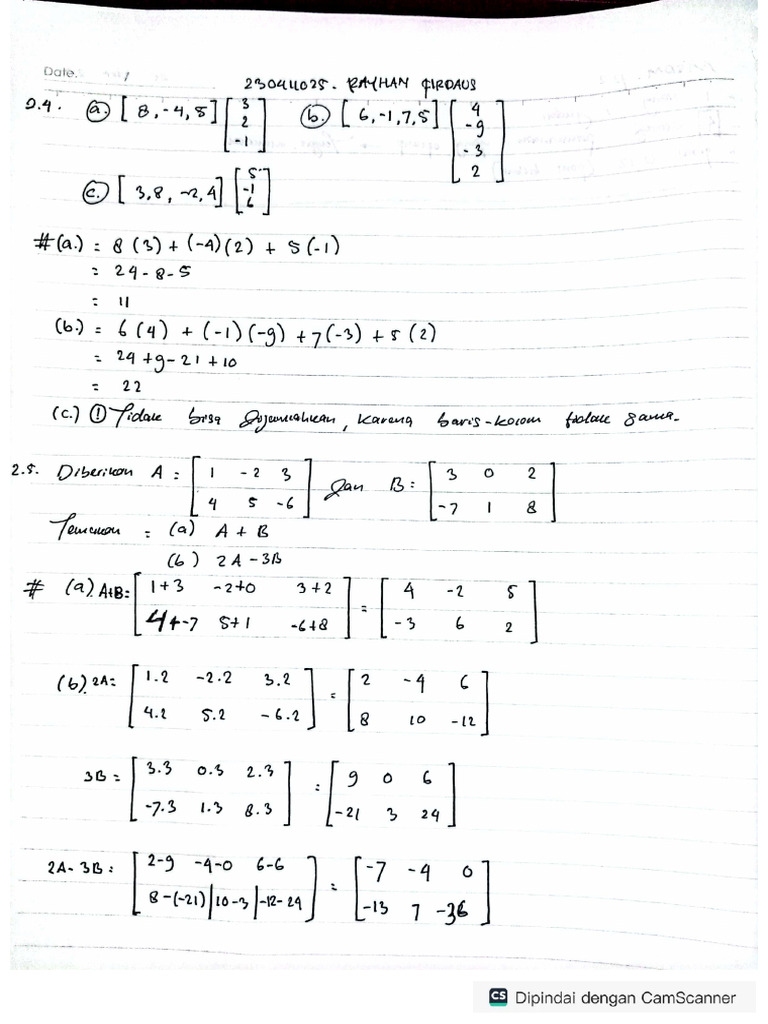 Date. /
23041025. RAYHAN FIRDAUS
2.4. (a.) [8, -4, 5] [3 2 -1] (b.) [6, -1, 7, 5] [4 -9 -3 2]
(c.) [3, 8, -2, 4] [5 -1 6]
# (a.) = 8 (3) + (-4)(2) + 5(-1)
= 24 - 8 - 5
= 11
(b.) = 6 (4) + (-1)(-9) + 7(-3) + 5 (2)
= 24 + 9 - 21 + 10
= 22
(c.) ! Tidak bisa dijumlahkan, karena baris-kolom tidak sama.
2.5. Diberikan A = [1 -2 3
4 5 -6] dan B = [3 0 2
-7 1 8]
Temukan = (a) A + B
(b) 2A - 3B
# (a) A+B = [1+3 -2+0 3+2
4+-7 5+1 -6+8] = [4 -2 5
-3 6 2]
(b). 2A = [1.2 -2.2 3.2
4.2 5.2 -6.2] = [2 -4 6
8 10 -12]
3B = [3.3 0.3 2.3
-7.3 1.3 8.3] = [9 0 6
-21 3 24]
2A - 3B = [2-9 -4-0 6-6
8-(-21) | 10-3 | -12-24] = [-7 -4 0
-13 7 -36]
CS Dipindai dengan CamScanner